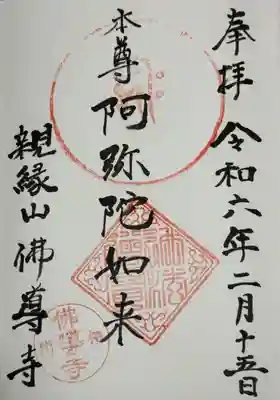 奉拝 令和六年二月十五日
本尊 阿弥陀如来
親縁山 佛尊寺
佛尊寺